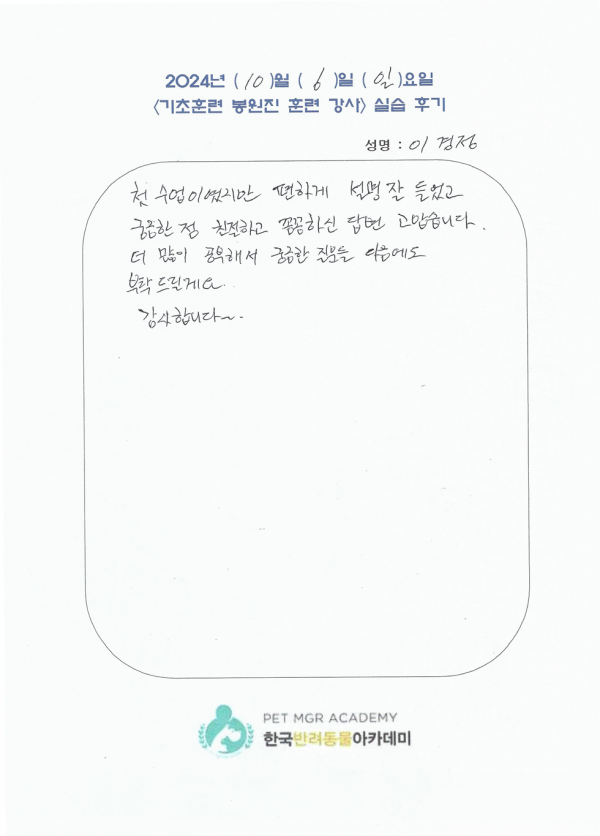 2024년 (10)월 (6)일 (일)요일
<기초훈련 봉원진 훈련 강사> 실습 후기
성명 : 이경정
첫 수업이였지만 편하게 설명 잘 들었고
궁금한 점 친절하고 꼼꼼하신 답변 고맙습니다.
더 많이 공부해서 궁금한 질문들 다음에도
부탁드릴게요.
감사합니다~.
PET MGR ACADEMY
한국반려동물아카데미